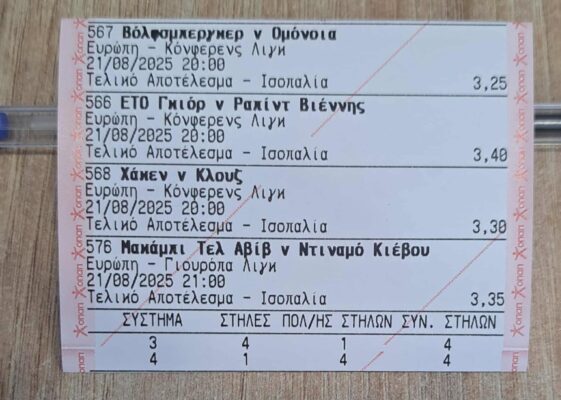 567 Βόλφσμπεργκερ v Ομόνοια
Ευρώπη - Κόνφερενς Λιγκ
21/08/2025 20:00
Τελικό Αποτέλεσμα - Ισοπαλία 3,25
566 ΕΤΟ Γκιόρ v Ραπίντ Βιέννης
Ευρώπη - Κόνφερενς Λιγκ
21/08/2025 20:00
Τελικό Αποτέλεσμα - Ισοπαλία 3,40
568 Χάκεν v Κλουζ
Ευρώπη - Κόνφερενς Λιγκ
21/08/2025 20:00
Τελικό Αποτέλεσμα - Ισοπαλία 3,30
576 Μακάμπι Τελ Αβίβ v Ντιναμό Κιέβου
Ευρώπη - Γιουρόπα Λιγκ
21/08/2025 21:00
Τελικό Αποτέλεσμα - Ισοπαλία 3,35
ΣΥΣΤΗΜΑ ΣΤΗΛΕΣ ΠΟΛ/ΗΣ ΣΤΗΛΩΝ ΣΥΝ. ΣΤΗΛΩΝ
3 4 1 4
4 1 4 4
οπαπ